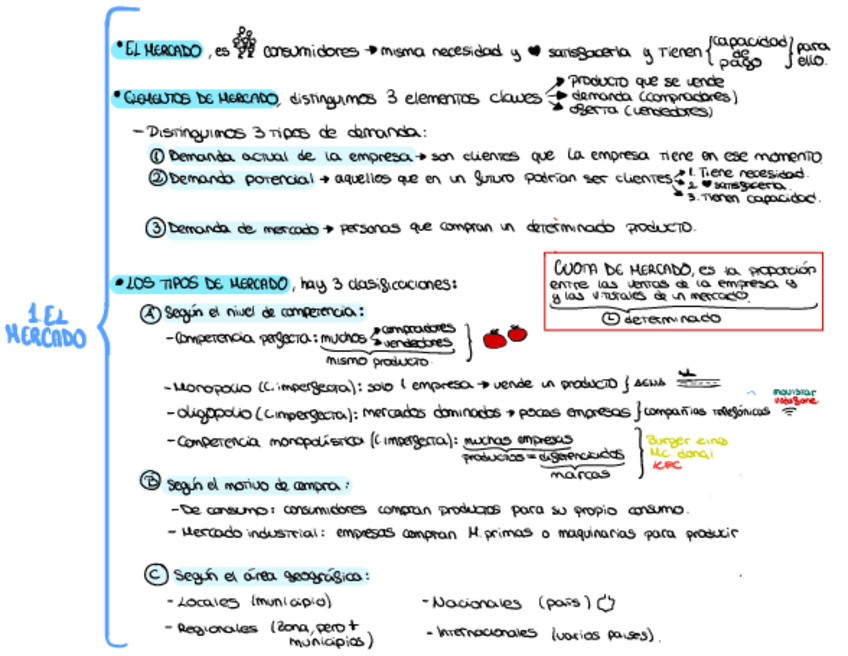 1. EL MERCADO
• EL MERCADO, es consumidores → misma necesidad y ♥ satisfacerla y tienen {capacidad de pago} para ello.
• ELEMENTOS DE MERCADO, distinguimos 3 elementos claves
→ producto que se vende
→ demanda (compradores)
→ oferta (vendedores)
- Distinguimos 3 tipos de demanda:
① Demanda actual de la empresa → son clientes que la empresa tiene en ese momento.
② Demanda potencial → aquellos que en un futuro podrían ser clientes
→ 1. Tiene necesidad.
→ 2. ♥ satisfacerla.
→ 3. Tienen capacidad.
③ Demanda de mercado → personas que compran un determinado producto.
• LOS TIPOS DE MERCADO, hay 3 clasificaciones:
CUOTA DE MERCADO, es la proporción
entre las ventas de la empresa y
y las v. totales de un mercado.
determinado
Ⓐ Según el nivel de competencia:
- Competencia perfecta: muchos
→ compradores
→ vendedores
mismo producto.
- Monopolio (C. imperfecta): solo 1 empresa → vende un producto } AENA
- Oligopolio (C. imperfecta): mercados dominados → pocas empresas } compañías telefónicas
movistar
vodafone
- Competencia monopolística (C. imperfecta): muchas empresas
productos = diferenciados
marcas
Burger King
KFC
Ⓑ Según el motivo de compra:
- De consumo: consumidores compran productos para su propio consumo.
- Mercado industrial: empresas compran M. primas o maquinarias para producir
Ⓒ Según el área geográfica:
- Locales (municipio)
- Nacionales (país)
- Regionales (Zona, pero + municipios)
- Internacionales (varios países).